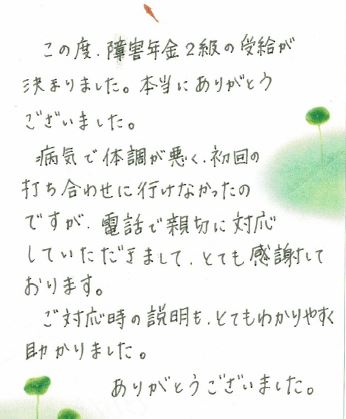 この度、障害年金2級の受給が
決まりました。本当にありがとう
ございました。
病気で体調が悪く、初回の
打ち合わせに行けなかったの
ですが、電話で親切に対応
していただきまして、とても感謝して
おります。
ご対応時の説明も、とてもわかりやすく
助かりました。
ありがとうございました。